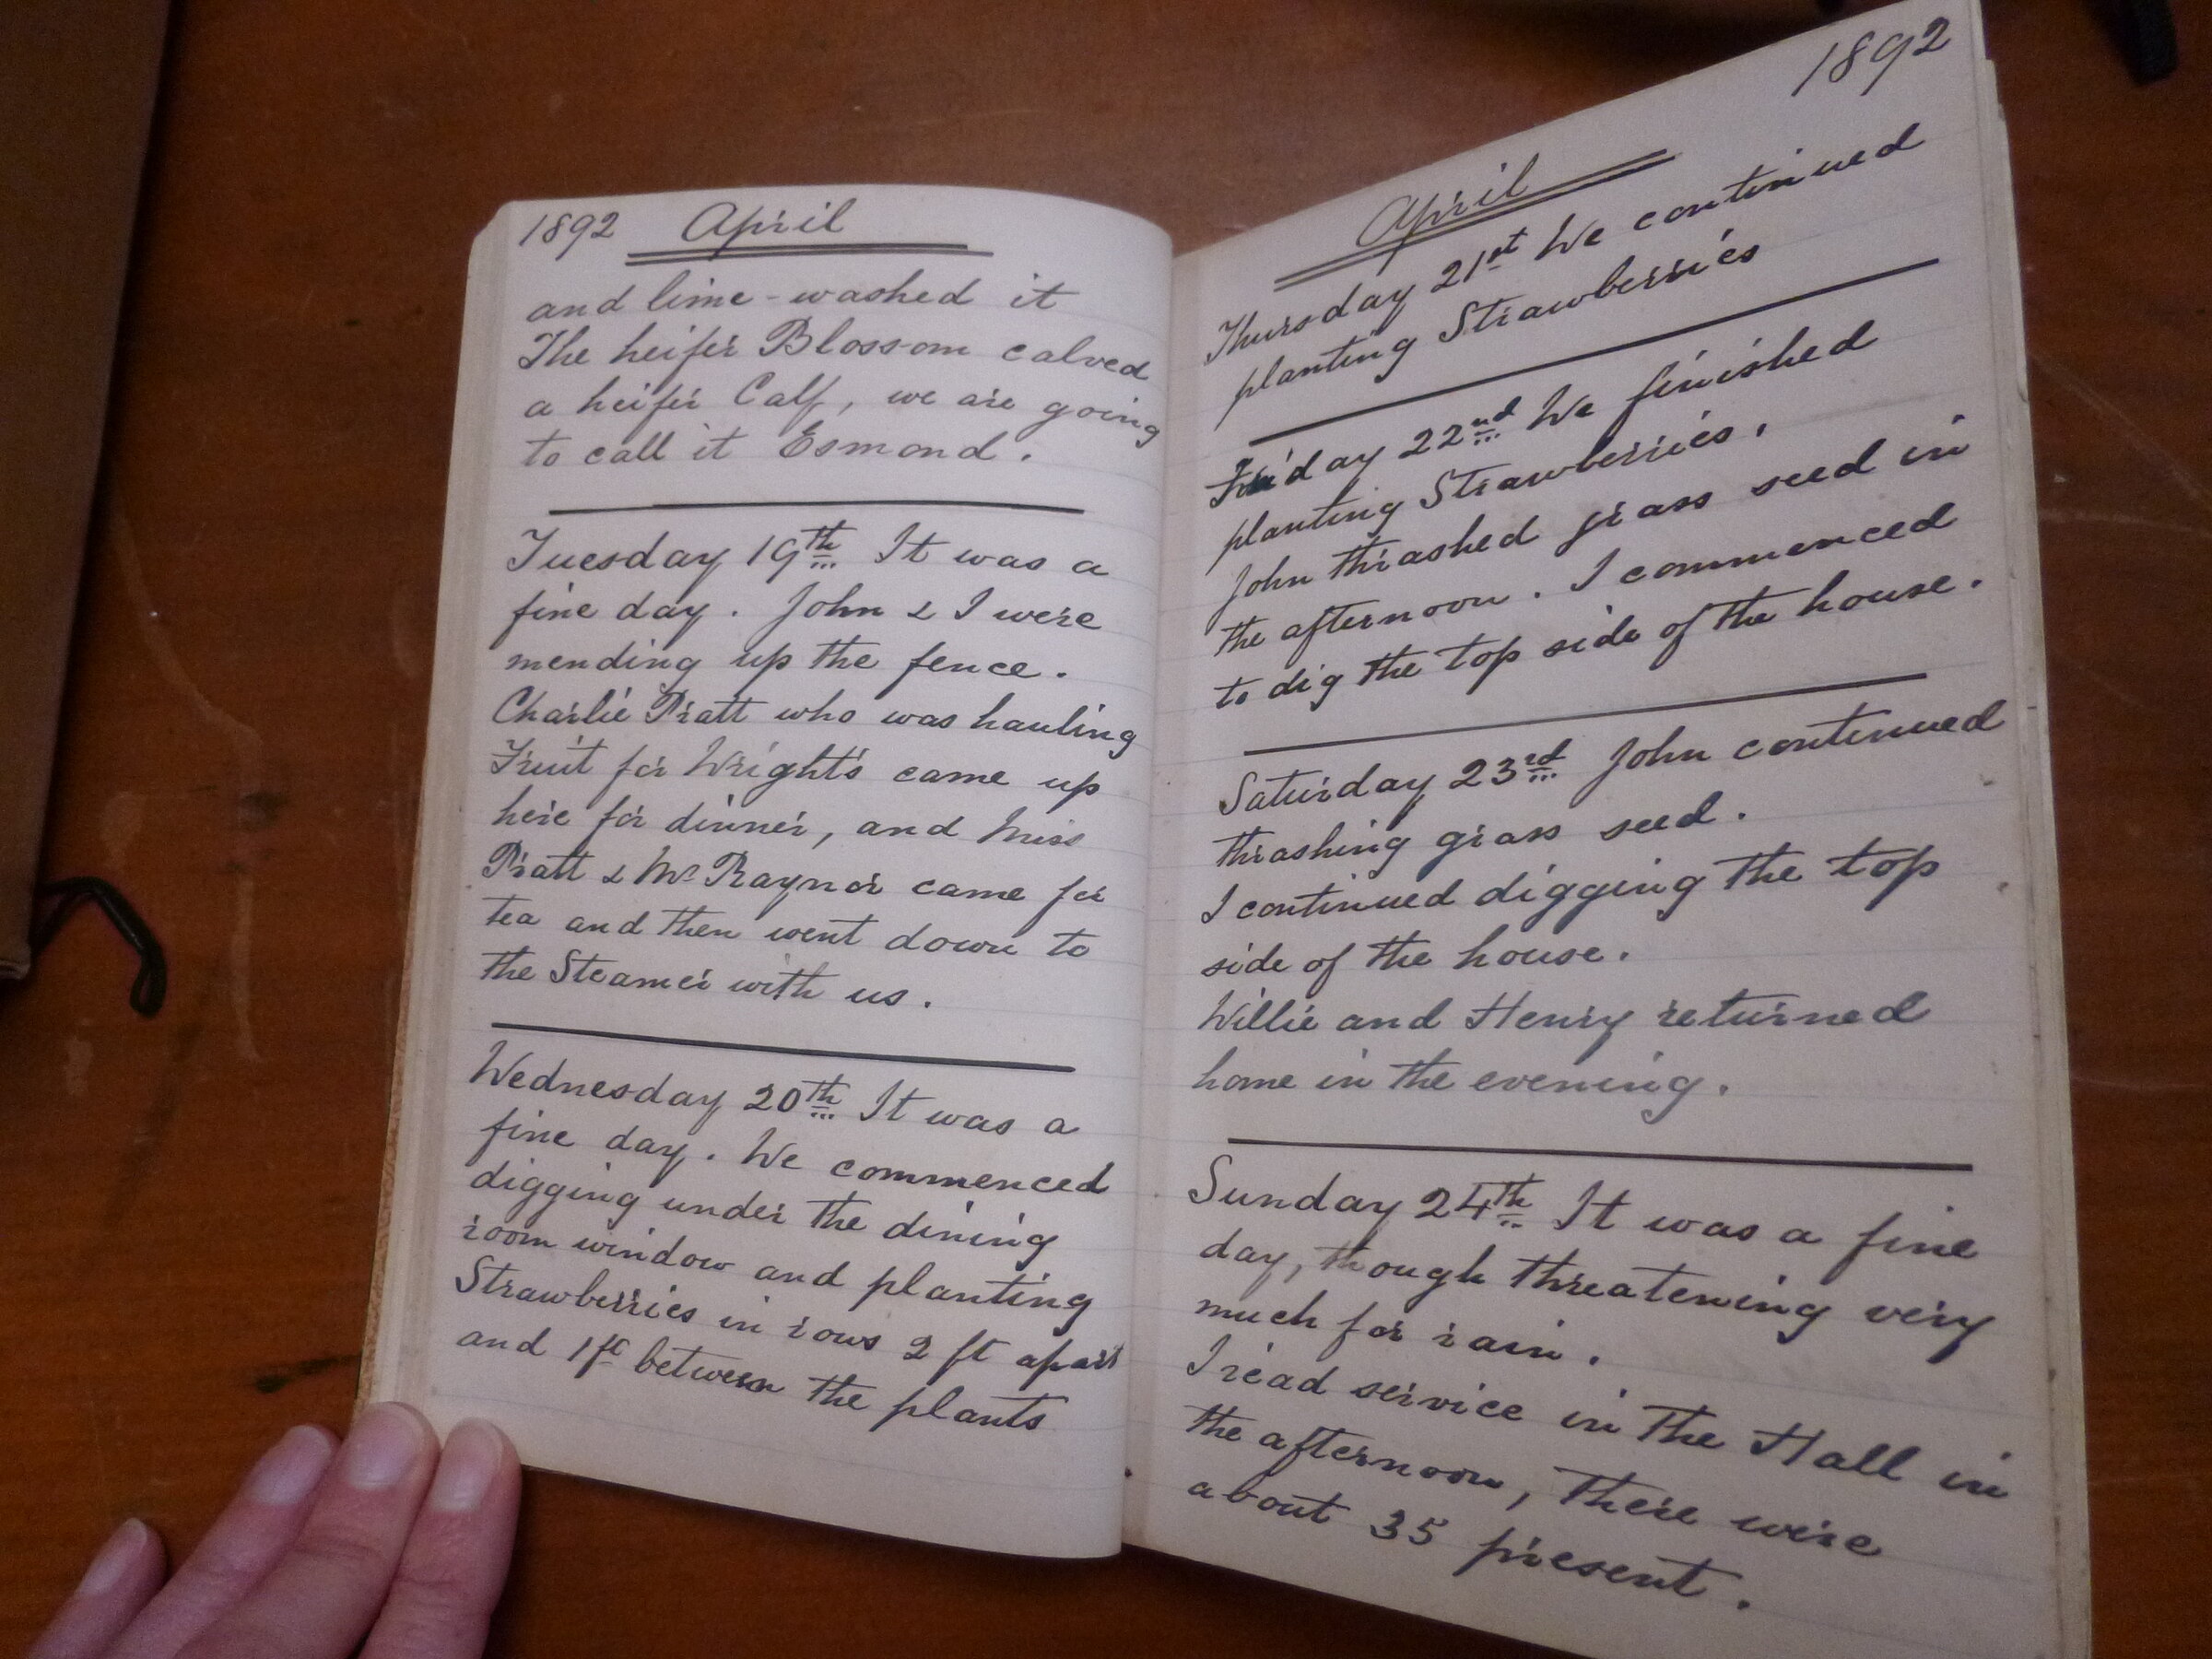 1892 April
and lime-washed it
The heifer Blossom calved
a heifer Calf, we are going
to call it Esmond.
Tuesday 19th It was a
fine day. John & I were
mending up the fence.
Charlie Pratt who was hauling
Fruit for Wright's came up
here for dinner, and Miss
Pratt & Mr Raynor came for
tea and then went down to
the Steamer with us.
Wednesday 20th It was a
fine day. We commenced
digging under the dining
room window and planting
Strawberries in rows 2 ft apart
and 1ft between the plants
1892
April
Thursday 21st We continued
planting Strawberries
Friday 22nd We finished
planting Strawberries.
John thrashed grass seed in
the afternoon. I commenced
to dig the top side of the house.
Saturday 23rd John continued
thrashing grass seed.
I continued digging the top
side of the house.
Willie and Henry returned
home in the evening.
Sunday 24th It was a fine
day, though threatening very
much for rain.
I read service in the Hall in
the afternoon, There were
about 35 present.